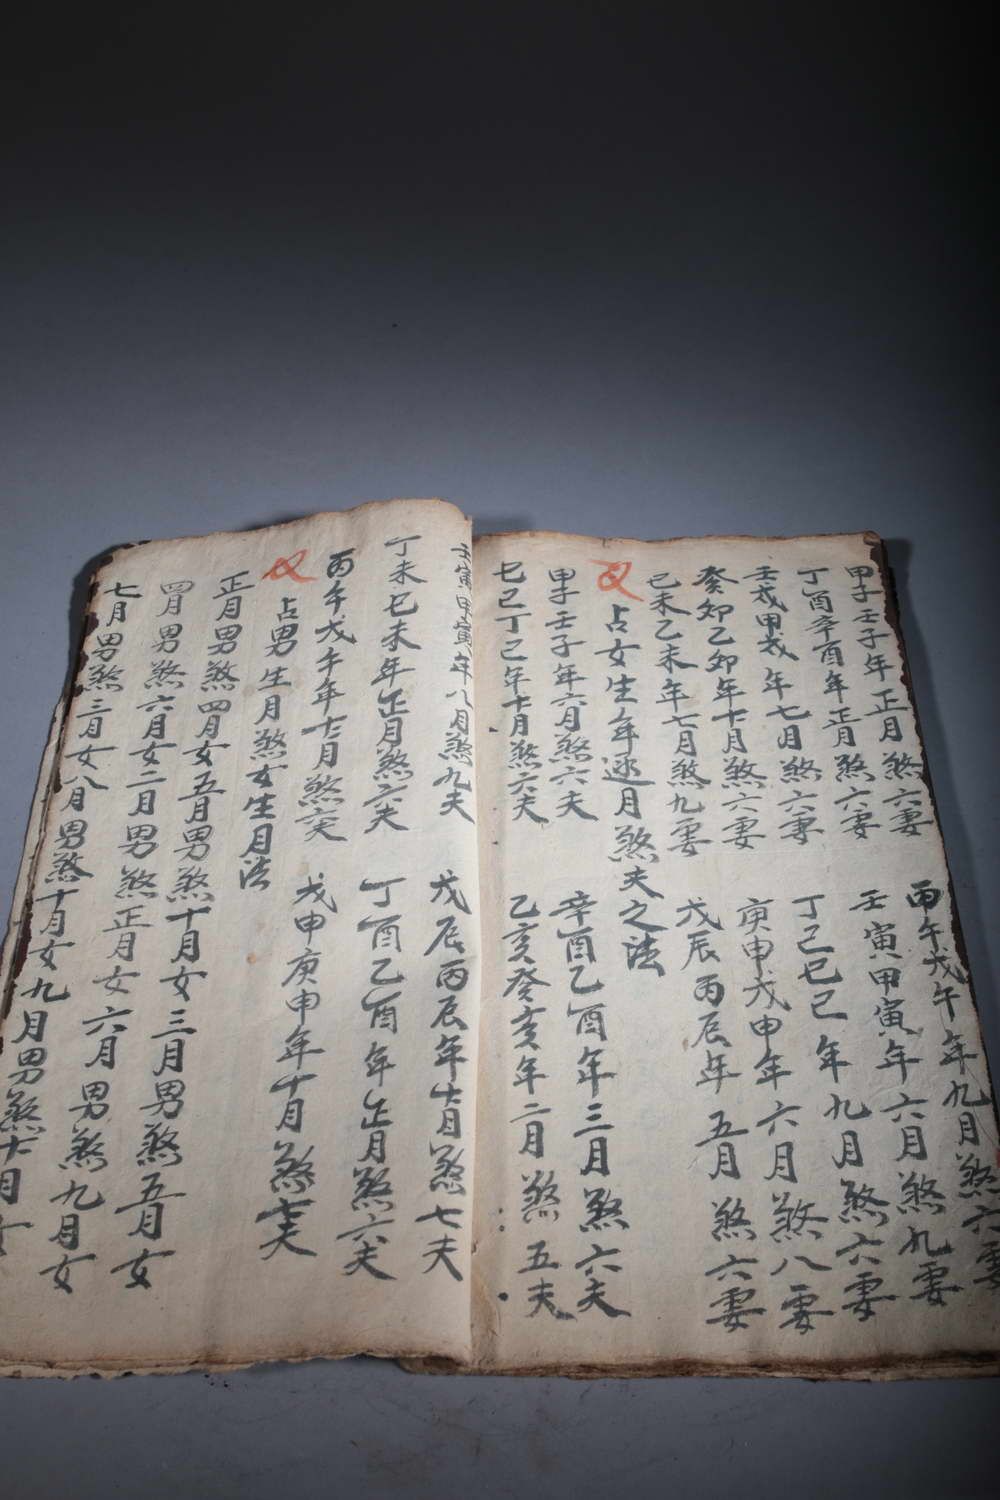 甲子壬子年正月煞六妻　丙午戊午年九月煞六妻
丁酉辛酉年正月煞六妻　壬寅甲寅年六月煞九妻
壬戌甲戌年七月煞六妻　丁己巳己年九月煞六妻
癸卯乙卯年十月煞六妻　庚申戊申年六月煞八妻
己未乙未年七月煞九妻　戊辰丙辰年五月煞六妻
又占女生年逐月煞夫之法
甲子壬子年六月煞六夫　辛酉乙酉年三月煞六夫
己丁己年十月煞六夫　乙亥癸亥年二月煞五夫
壬寅甲寅年八月煞九夫　戊辰丙辰年十月煞七夫
丁未己未年正月煞六夫　丁酉乙酉年正月煞六夫
丙午戊午年十二月煞六夫　戊申庚申年十月煞七夫
又占男生月煞女生月法
正月男煞四月女五月男煞十月女三月男煞五月女
四月男煞六月女二月男煞正月女六月男煞九月女
七月男煞三月女八月男煞十月女九月男煞十月女